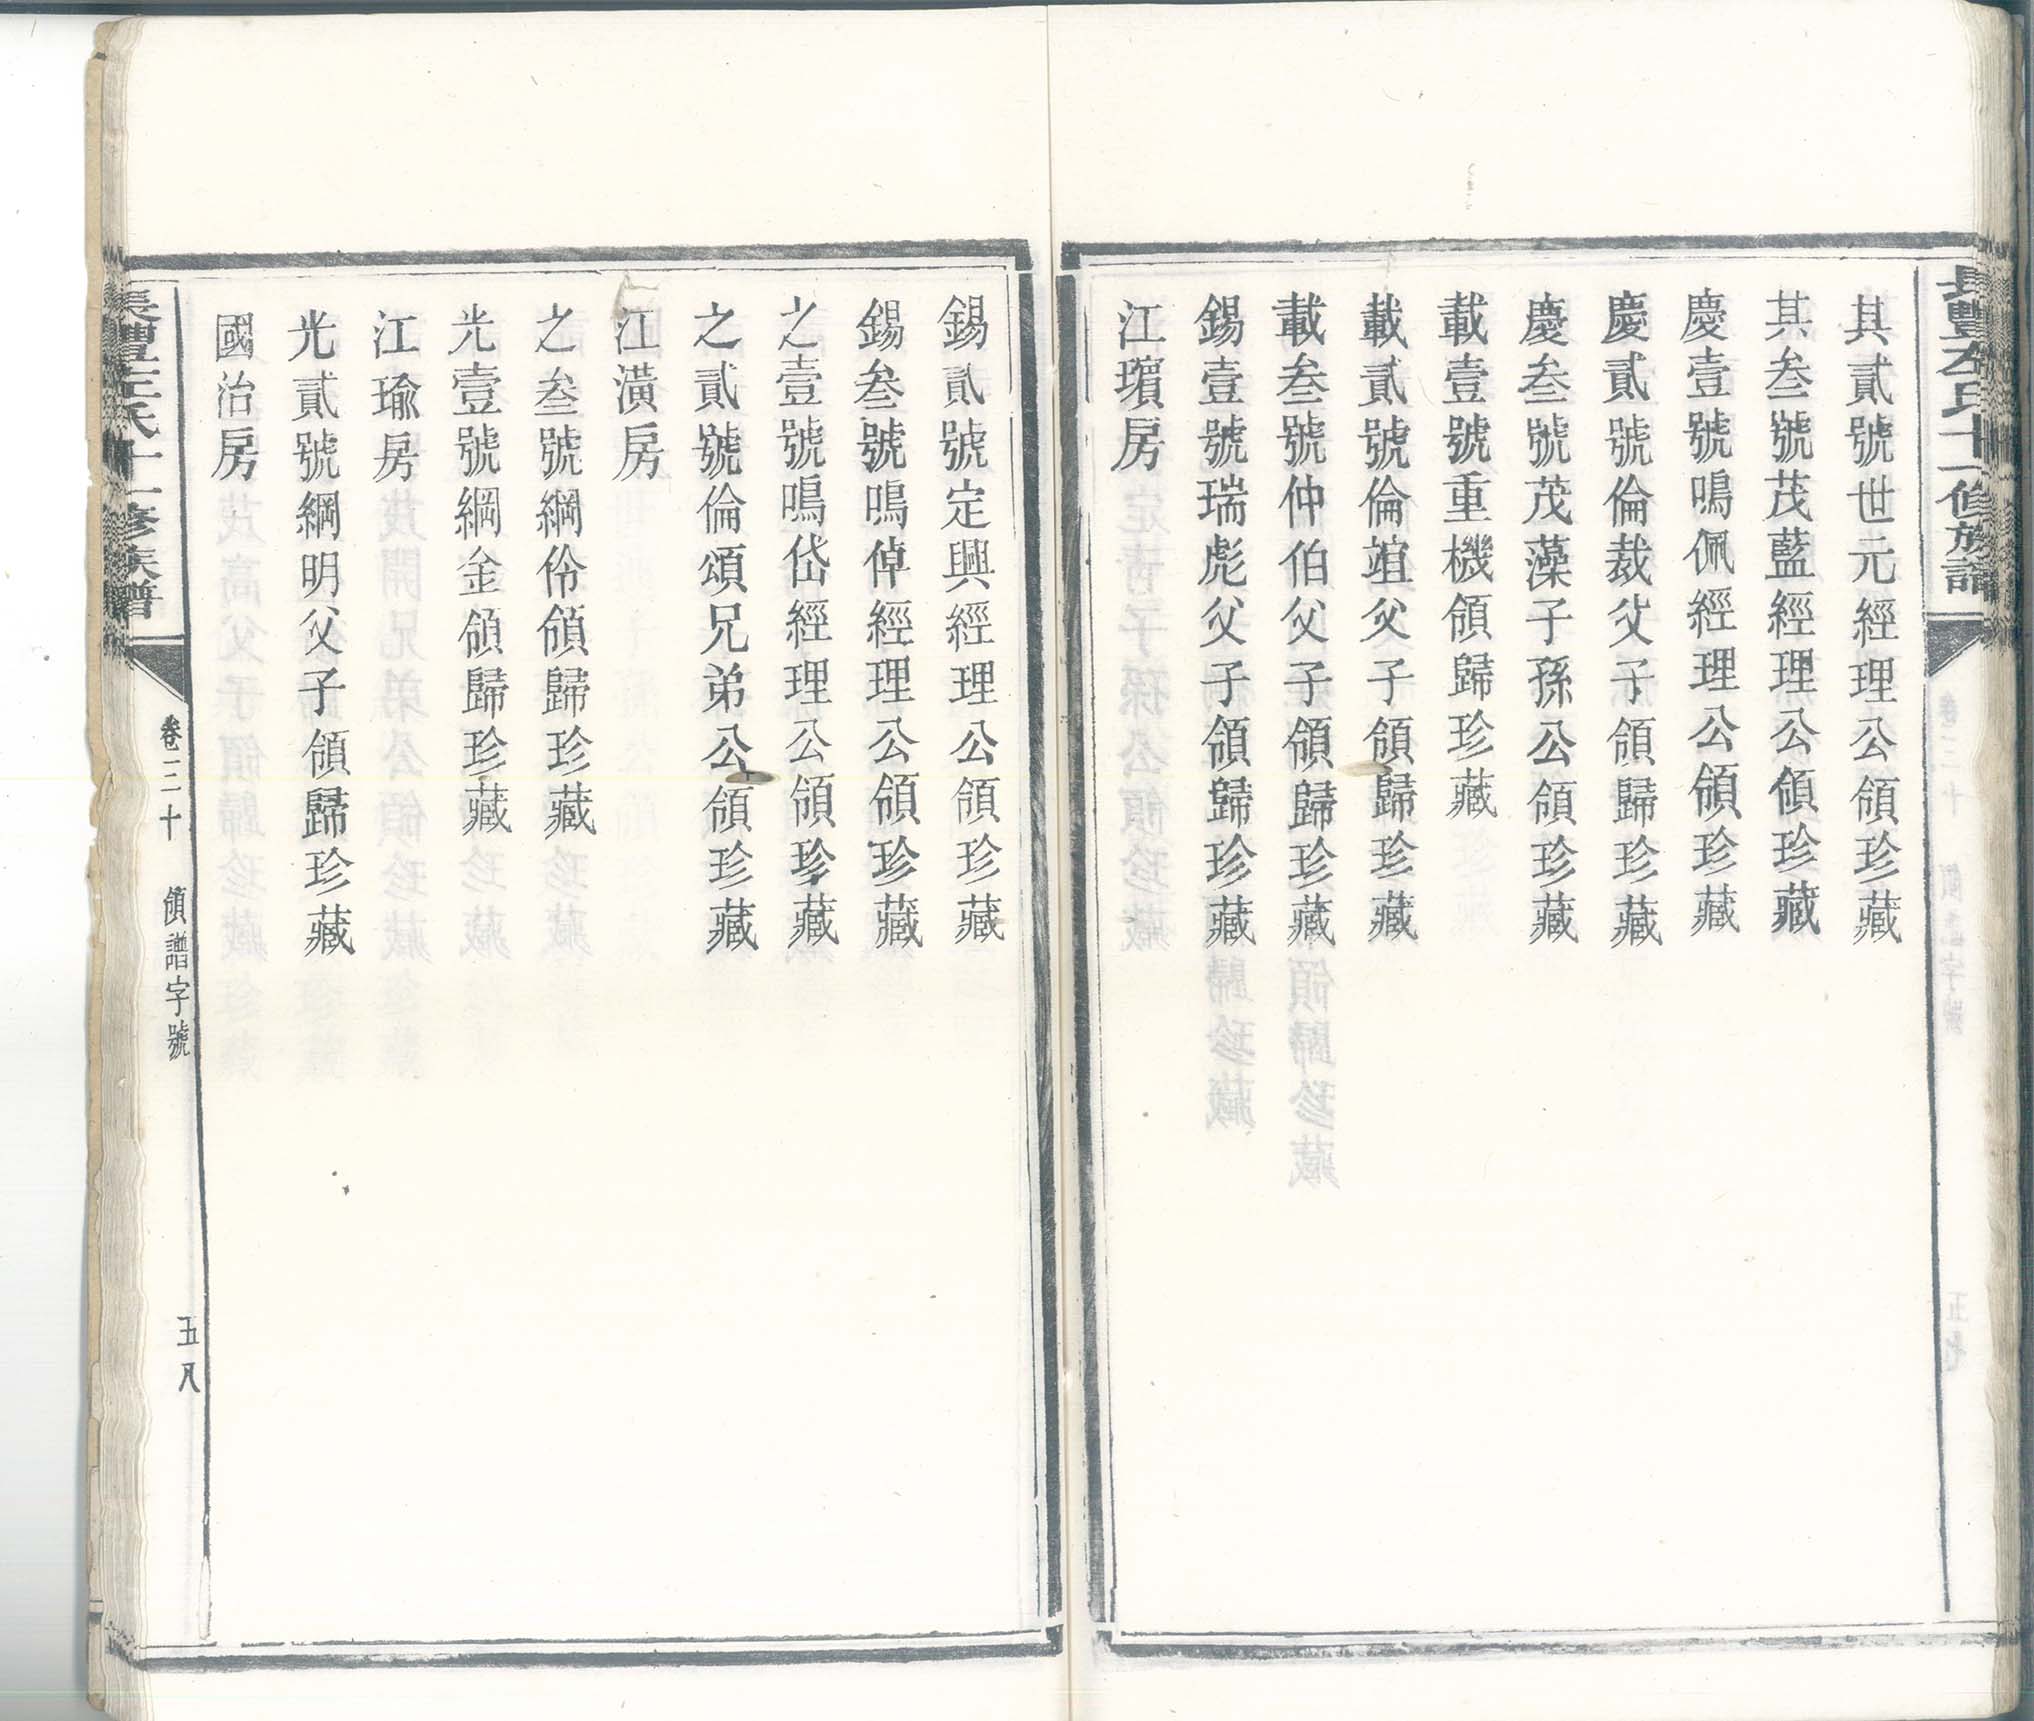 長豐左氏十一修族譜
其貳號世元經理公領珍藏
其叁號茂藍經理公領珍藏
慶壹號鳴佩經理公領珍藏
慶貳號倫裁父子領歸珍藏
慶叁號茂藻子孫公領珍藏
載壹號重機領歸珍藏
載貳號倫竩父子領歸珍藏
載叁號仲伯父子領歸珍藏
錫壹號瑞彪父子領歸珍藏
江瓆房
錫貳號定興經理公領珍藏
錫叁號鳴倬經理公領珍藏
之壹號鳴岱經理公領珍藏
之貳號倫頌兄弟公領珍藏
江潢房
之叁號綱伶領歸珍藏
光壹號綱金領歸珍藏
江瑜房
光貳號綱明父子領歸珍藏
國治房
長豐左氏十一修族譜
卷三十
領譜字號
五八